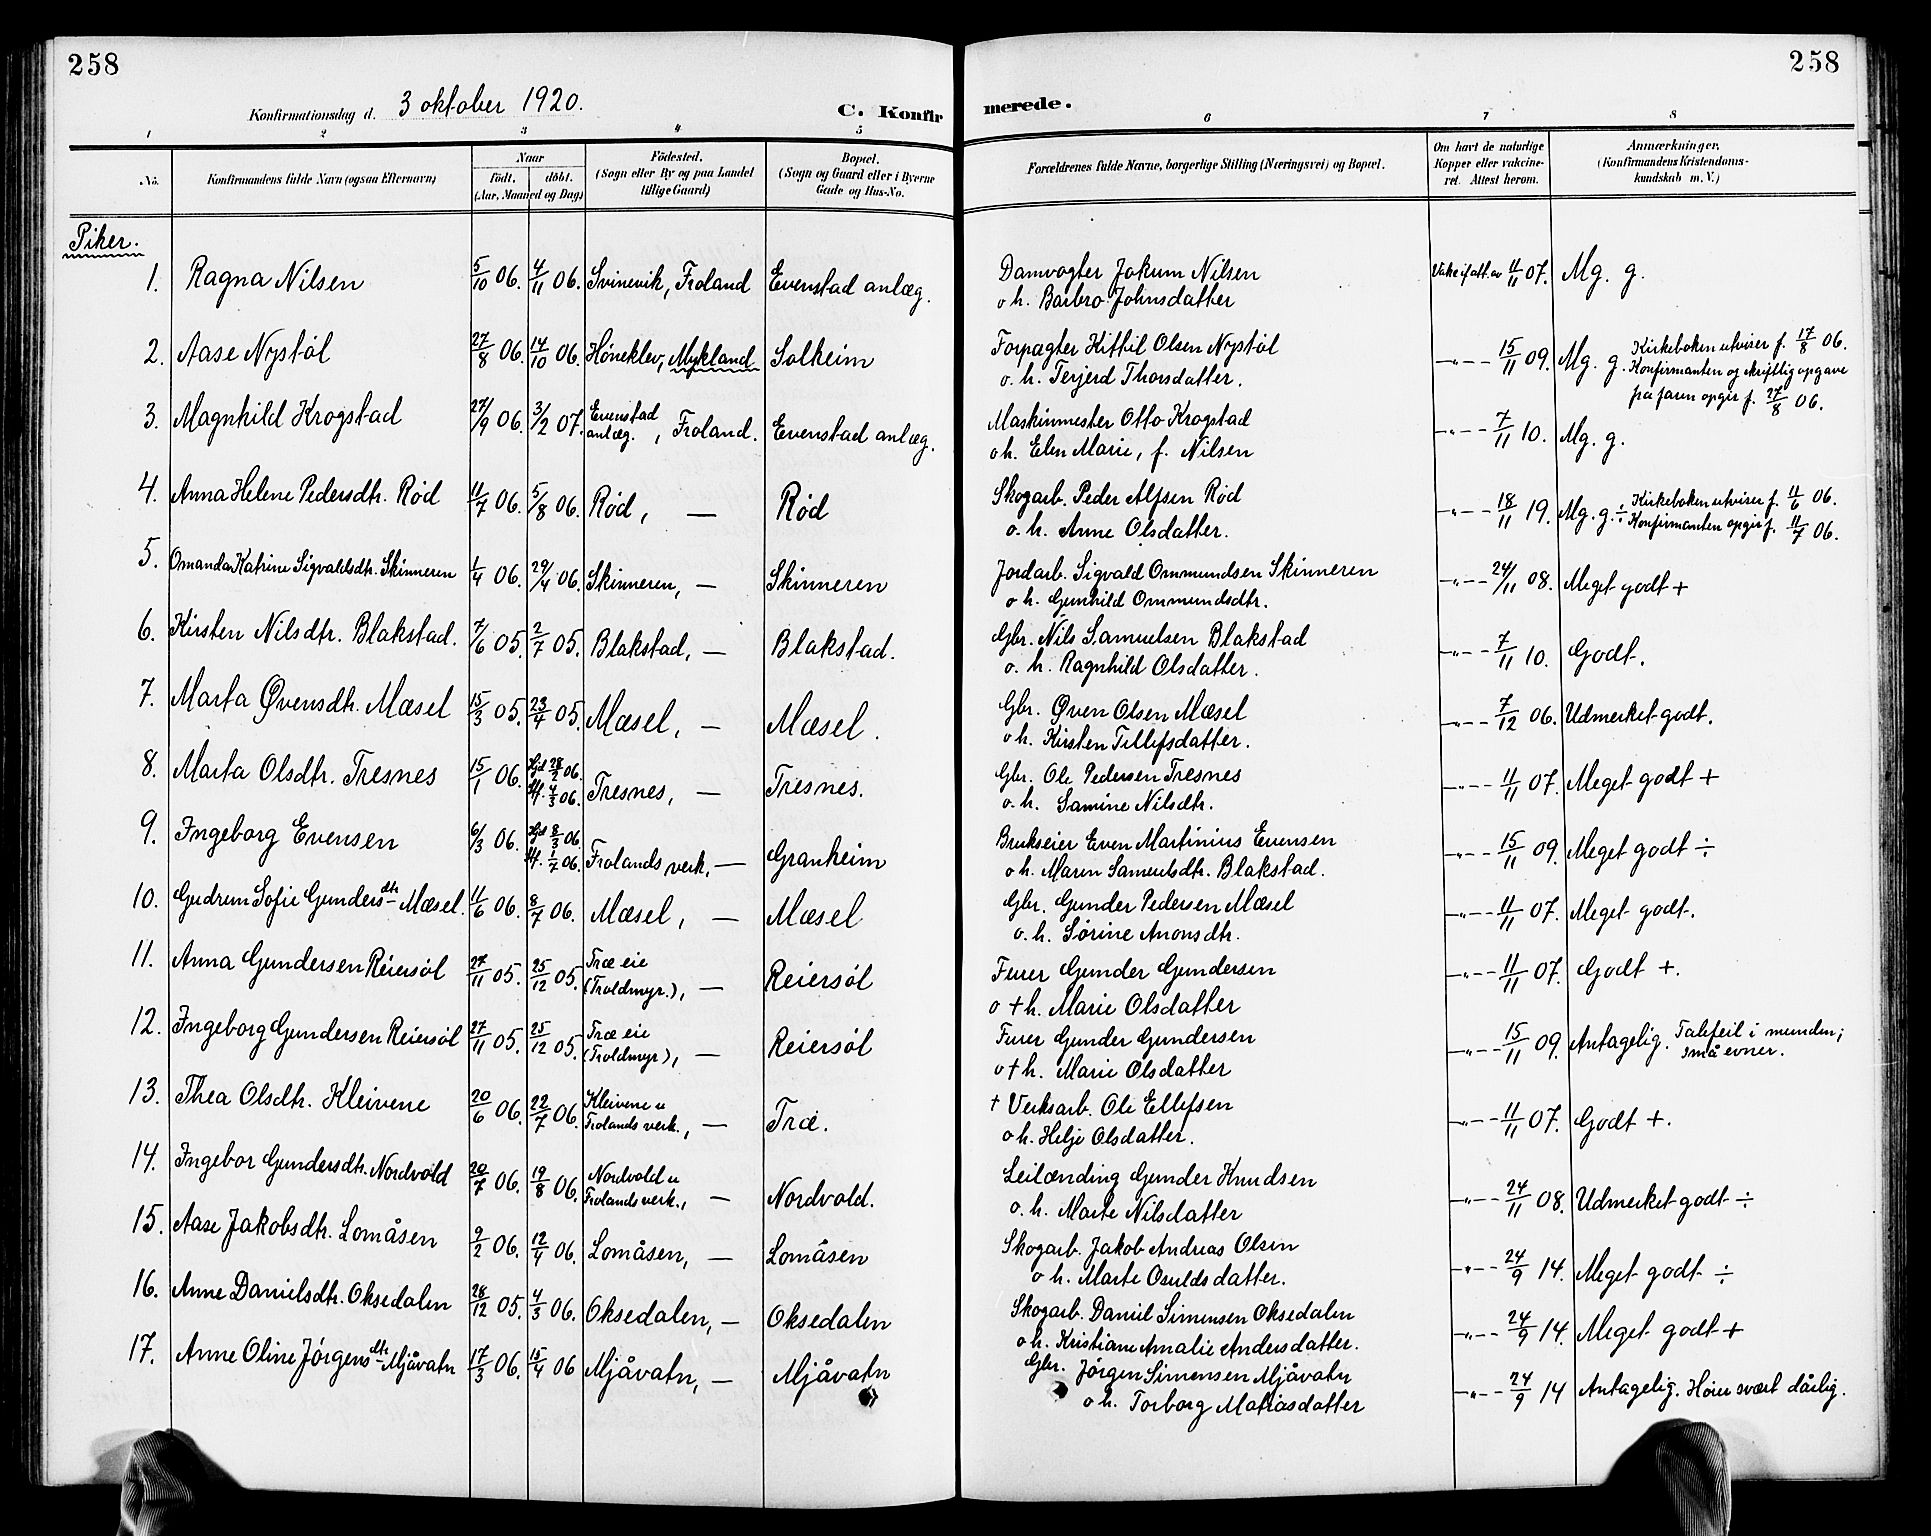 258
258
Konfirmationsdag d. 3 oktober 1920.
C. Konfirmerede.
1 2 3 4 5 6 7 8
No.
Konfirmandens fulde Navn (ogsaa Efternavn)
Naar
født. døbt.
(Aar, Maaned og Dag)
Fødested.
(Sogn eller By og paa Landet
tillige Gaard)
Bopæl.
(Sogn og Gaard eller i Byerne
Gade og Hus-No.
Forældrenes fulde Navne, borgerlige Stilling (Næringsvei) og Bopæl.
Om havt de naturlige
Kopper eller vakcine-
ret. Attest herom.
Anmærkninger.
(Konfirmandens Kristendoms-
kundskab m. V.)
Piker.
1. Ragna Nilsen 5/10 06. 4/11 06. Svinevik, Froland Evenstad anlæg. Damvogter Jokum Nilsen Vakc.ifatt. av 11/11 07. Mg. g.
o h. Barbro Johnsdatter
2. Aase Nystøl 27/8 06. 14/10 06. Høneklev, Mykland Solheim Forpagter Kittil Olsen Nystøl —"— 15/11 09. Mg. g. Kirkeboken utviser f. 17/8 06.
o. h. Terjerd Thorsdatter. Konfirmanten og skriftlig opgave
fra faren opgir f. 27/8 06.
3. Magnhild Krogstad 27/9 06. 3/2 07. Evenstad anlæg., Froland. Evenstad anlæg. Maskinmester Otto Krogstad —"— 7/11 10. Mg. g.
o h. Elen Marie, f. Nilsen
4. Anna Helene Pedersdtr. Rød 11/7 06. 5/8 06. Rød, — Rød Skogarb. Peder Alfsen Rød —"— 18/11 19. Mg. g. ÷ Kirkeboken utviser f. 11/6 06.
o. h. Anne Olsdatter. Konfirmanten opgir f. 11/7 06.
5. Omanda Katrine Sigvaldsdtr. Skinneren 1/4 06. 29/4 06. Skinneren, — Skinneren Jordarb. Sigvald Ommundsen Skinneren —"— 24/11 08. Meget godt +
o h. Gunhild Ommundsdtr.
6. Kirsten Nilsdtr. Blakstad. 7/6 05. 2/7 05. Blakstad, — Blakstad. Gbr. Nils Samuelsen Blakstad —"— 7/11 10. Godt.
o. h. Ragnhild Olsdatter.
7. Marta Øvensdtr. Mæsel 15/3 05. 23/4 05. Mæsel, — Mæsel. Gbr. Øven Olsen Mæsel —"— 7/12 06. Udmerket godt.
o h. Kirsten Tellefsdatter.
8. Marta Olsdtr. Tresnes 15/1 06. Hjd 28/2 06. Tresnes, — Tresnes. Gbr. Ole Pedersen Tresnes —"— 11/11 07. Meget godt +
4/3 06. o. h. Samine Nilsdtr.
9. Ingeborg Evensen 6/3 06. Hjd 8/3 06. Frolands verk, — Granheim Brukseier Even Martinius Evensen —"— 15/11 09. Meget godt ÷
1/7 06. o h. Maren Samuelsdtr. Blakstad.
10. Gudrun Sofie Gundersdtr. Mæsel. 11/6 06. 8/7 06. Mæsel, — Mæsel Gbr. Gunder Pedersen Mæsel —"— 11/11 07. Meget godt.
o. h. Sørine Anonsdtr.
11. Anna Gundersen Reiersøl 27/11 05. 25/12 05. Træ eie (Troldmyr.), — Reiersøl Furer Gunder Gundersen —"— 11/11 07. Godt +.
o + h. Marie Olsdatter
12. Ingeborg Gundersen Reiersøl 27/11 05. 25/12 05. Træ eie (Troldmyr), — Reiersøl Furer Gunder Gundersen —"— 15/11 09. Antagelig. Talefeil i munden;
o + h. Marie Olsdatter små evner.
13. Thea Olsdtr. Kleivene 20/6 06. 22/7 06. Kleivene u Frolands verk., — Træ. + Verksarb. Ole Ellefsen —"— 11/11 07. Godt +.
o h. Helje Olsdatter.
14. Ingebor Gundersdtr. Nordvold 20/7 06. 19/8 06. Nordvold u Frolands verk., — Nordvold. Leilænding Gunder Knudsen —"— 24/11 08. Udmerket godt ÷
o. h. Marte Nilsdatter
15. Aase Jakobsdtr. Lomåsen 9/2 06. 12/4 06. Lomåsen, — Lomåsen Skogarb. Jakob Andreas Olsen —"— 24/9 14. Meget godt ÷
o h. Marte Osuldsdatter.
16. Anne Danielsdtr. Oksedalen 28/12 05. 4/3 06. Oksedalen, — Oksedalen Skogarb. Daniel Simensen Oksedalen —"— 24/9 14. Meget godt +
o h. Kristiane Amalie Andersdatter.
17. Anne Oline Jørgensdtr. Mjåvatn 17/3 06. 15/4 06 Mjåvatn, — Mjåvatn Gbr. Jørgen Simensen Mjåvatn —"— 24/9 14 Antagelig. Hører svært dårlig.
o h. Torborg Matiasdatter